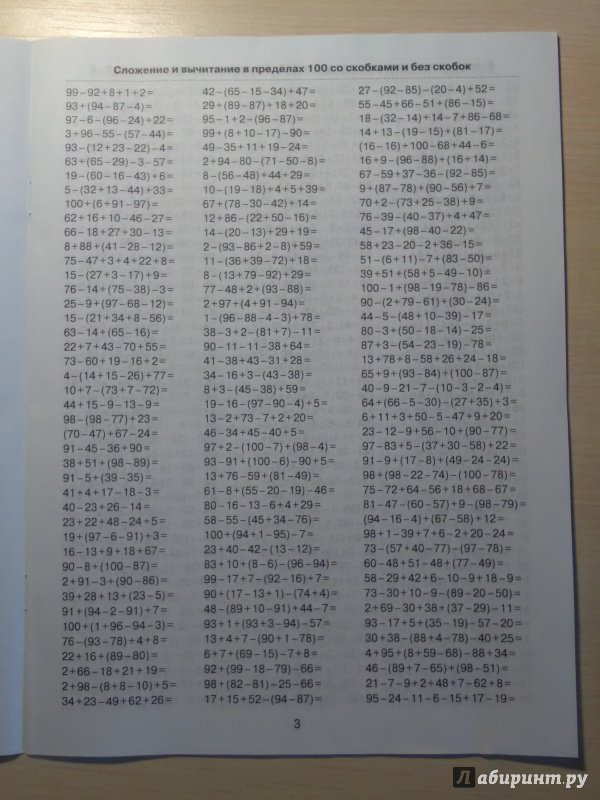 Сложение и вычитание в пределах 100 со скобками и без скобок
99-92+8+1+2=
93+(94-87-4)=
97-6-(96-24)+22=
3+96-55-(57-44)=
93-(12+23-22)-4=
63+(65-29)-3-57=
19-(60-16-43)+6=
5-(32+13-44)+33=
100+(6+91-97)=
62+16+10-46-27=
66-18+27+30-13=
8+88+(41-28-12)=
75-47+3+4+22+8=
15-(27+3-17)+9=
76-14+(75-38)-3=
25-9+(97-68-12)=
15-(21+34+8-56)=
63-14+(65-16)=
22+7+43-70+55=
73-60+19-16+2=
4-(14+15-26)+77=
10+7-(73+7-72)=
44+15-9-13-9=
98-(98-77)+23=
(70-47)+67-24=
91-45-36+90=
38+51+(98-89)=
91-5+(39-35)=
41+4+17-18-3=
40-23+26-14=
23+22+48-24+5=
19+(97-6-91)+3=
16-13+9+18+67=
90-8+(100-87)=
2+91-3+(90-86)=
39+28+13+(23-5)=
91+(94-2-91)+7=
100+(1+96-94-3)=
76-(93-78)+4+8=
22+16+(89-80)=
2+66-18+21+19=
2+98-(8+8-10)+5=
34+23-49+62+26=
42-(65-15-34)+47=
29+(89-87)+18+20=
95-1+2-(96-87)=
99+(8+10-17)-90=
49-35+11+19-24=
2+94-80-(71-50-8)=
8-(56-48)+44+29=
10-(19-18)+4+5+39=
67+(78-30-42)+14=
12+86-(22+50-16)=
14-(20-13)+29+19=
2-(93-86+2-8)+59=
11-(36+39-72)+18=
8-(13+79-92)+29=
77-48+2+(93-88)=
2+97+(4+91-94)=
1-(96-88-4-3)+78=
38-3+2-(81+7)-11=
90-11-11-38+64=
41-38+43-31+28=
34-16+3-(43-38)=
8+3-(45-38)+59=
19-16-(97-90-4)+5=
13-2+73-7+2+20=
46-34+45-40+5=
97+2-(100-7)+(98-4)=
93-91+(100-6)-90+5=
13+76-59+(81-49)=
61-8+(55-20-19)-46=
80-16-13-6+4+29=
58-55-(45+34-76)=
100+(94+1-95)-7=
23+40-42-(13-12)=
83+10+(8-6)-(96-94)=
99-17+7-(92-16)+7=
90+(17-13+1)-(74+4)=
48-(89+10-91)+44-7=
93+1+(93+3-94)-57=
13+4+7-(90+1-78)=
6+7+(69-15)-7+8=
92+(99-18-79)-66=
98+(82-81)-25-66=
17+15+52-(94-87)=
27-(92-85)-(20-4)+52=
55-45+66-51+(86-15)=
18-(32-14)+14-7+86-68=
14+13-(19-15)+(81-17)=
(16-16)+100-68+44-6=
16+9-(96-88)+(16+14)=
67-59+37-36-(92-85)=
9+(87-78)+(90-56)+7=
70+2-(73+25-38)+9=
76-39-(40-37)+4+47=
45-17+(98-40-22)=
58+23-20-2+36-15=
51-(6+11)-7+(83-50)=
39+51+(58+5-49-10)=
100-1+(98-19-78)-86=
90-(2+79-61)+(30-24)=
44-5-(48+10-39)-17=
80-3+(50-18-14)-25=
87+3-(54-23-19)-78=
13+78+8-58+26+24-18=
65+9+(93-84)+(100-87)=
40-9-21-7-(10-3-2-4)=
64+(66-5-30)-(27+35)+3=
6+11+3+50-5-47+9+20=
23-12-9+56-10+(90-77)=
97-83+5-(37+30-58)+22=
91-9+(17-8)+(49-24-24)=
98+(98-22-74)-(100-78)=
75-72+64-56+18+68-67=
81-47-(60-57)+9-(98-79)=
(94-16-4)+(67-58)+12=
98+1-39+7+6-2+20-24=
73-(57+40-77)-(97-78)=
60-48+51-48+(77-49)=
58-29+42+6-10-9+18-9=
73-30+10-9-(89-20-50)=
2+69-30+38+(37-29)-11=
93-17+5+(35-19)-57-20=
30+38-(88+4-78)-40+25=
4+95+(8+59-68)-88+34=
46-(89+7-65)+(98-51)=
21-7-9+2+48+7-62+8=
95-24-11-6-15+17-19=
3
Лабиринт.ру